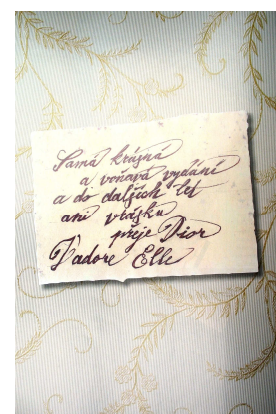 Samá krásná
a voňavá vydání
a do dalších let
ani vrásku
přeje Dior
J'adore Elle